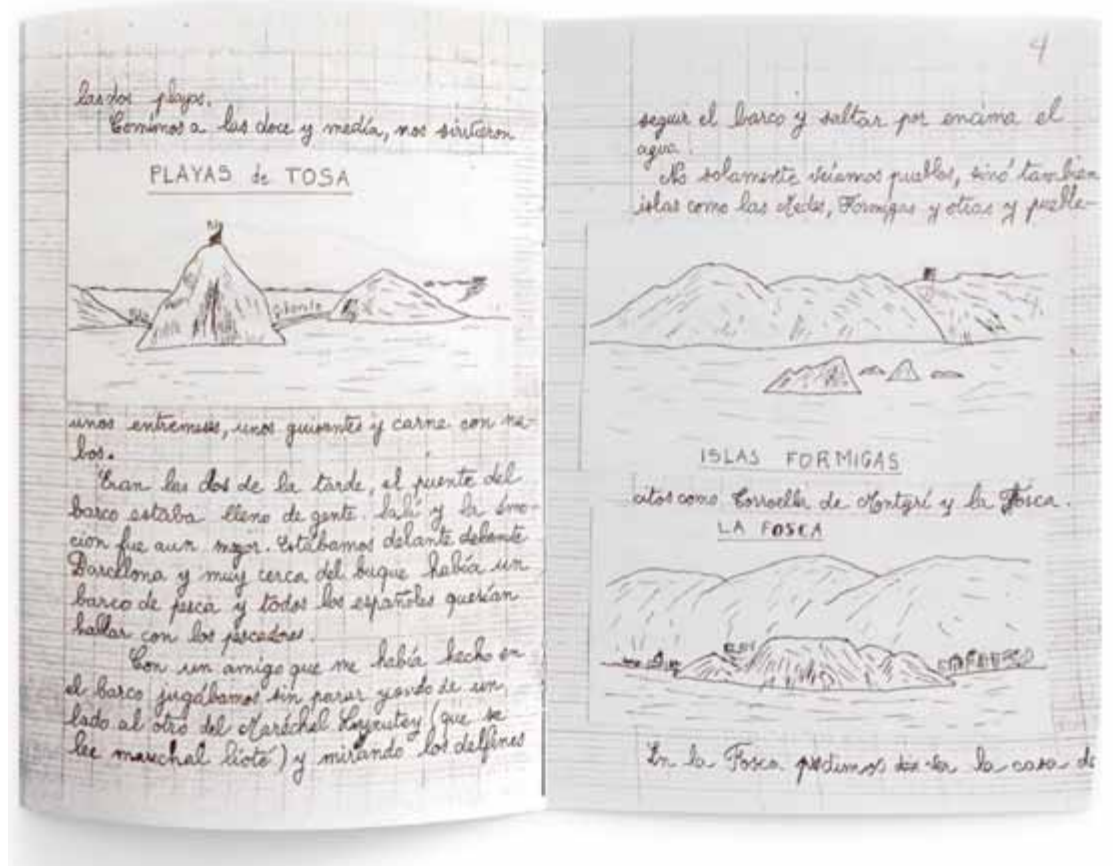 las dos playas.
Comimos a las doce y medía, nos sirvieron
PLAYAS de TOSA
unos entremeses, unos guisantes y carne con na-
bos.
Eran las dos de la tarde, el puente del
barco estaba lleno de gente. y la emo-
cion fue aun mejor. Estábamos delante
Barcelona y muy cerca del buque había un
barco de pesca y todos los españoles querían
hablar con los pescadores.
Con un amigo que me había hecho en
el barco jugábamos sin parar yendo de un
lado al otro del Maréchal (que se
lee marechal lioté) y mirando los delfines
4
seguir el barco y saltar por encima el
agua.
No solamente veíamos pueblos, sinó tambien
islas como las Medes, Formigas y otras y pueble-
ISLAS FORMIGAS
citos como Torroella de Montgrí y la Fosca.
LA FOSCA
En la Fosca pudimos ver la casa de